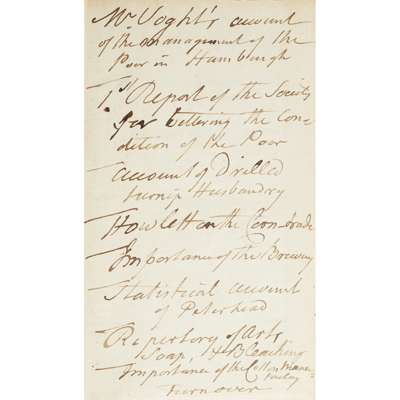 Mr Voght's account
of the management of the
Poor in Hamburgh
1st Report of the Society
for bettering the Con-
dition of the Poor
Account of Drilled
turnip Husbandry
Howlett on the Corn trade
Importance of the Brewery
Statistical account
of Peterhead
Repertory of Arts
Soap, & Bleaching
Importance of the Cotton Manu-
factory
turn over